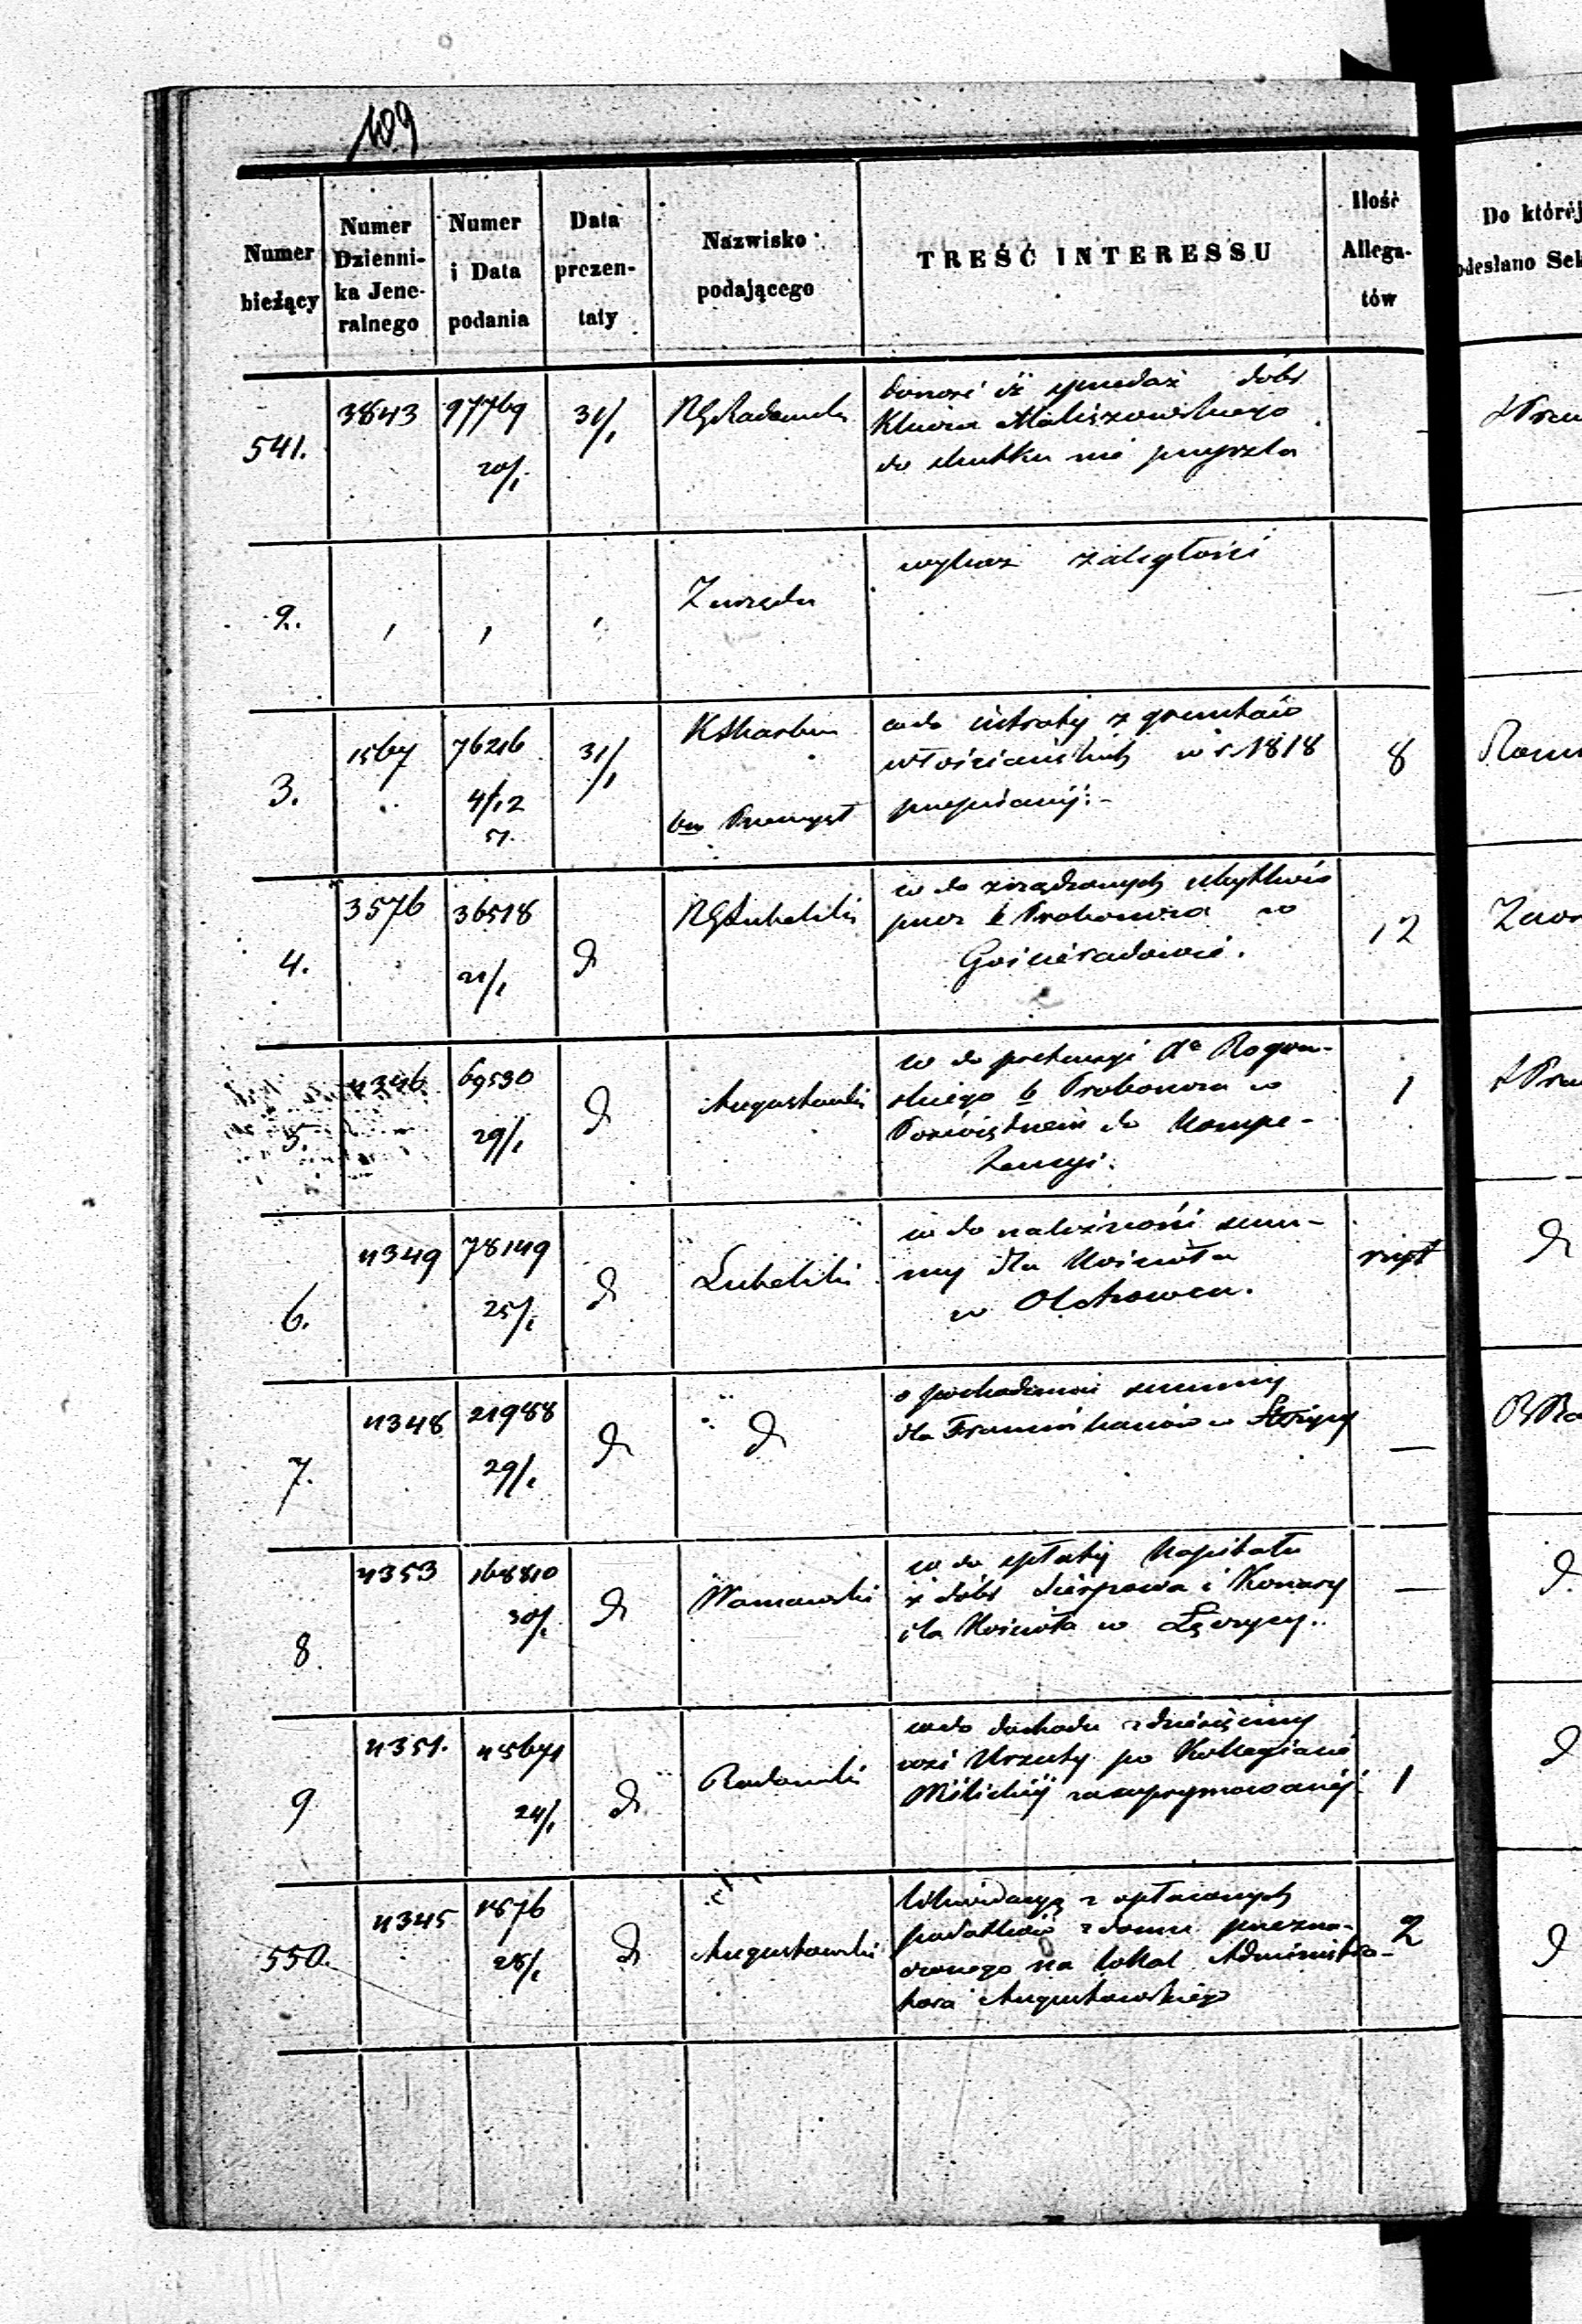 109
Numer bieżący
Numer Dzienni-ka Jene-ralnego
Numer i Data podania
Data prezen-taty
Nazwisko podającego
TREŚĆ INTERESSU
Ilość Allega-tów
Do któréj
odesłano Sek
541. 3843 97769 20/1 31/1 RGRadomski
donosi iż sprzedaż dóbr
Klucza Maliszowskiego
do skutku nie przyszła
2. Zurzędu
wykaz zaległości
3. 1567 76216 4/12 57. 31/1 KSkarbu
wzdo intraty z gruntów
włościańskich w r. 1818
8
4. 3576 36518 21/1 RGLubelski
w do zrządzonych ubytków
przez b Proboszcza w
Gościeradowie.
12
5. 4346 69530 29/1 d Augustowski
w do pretensyi Xa Rogow-
skiego b Proboszcza w
Poświętnem do Kompe-
tencyi.
1
6. 4349 78149 25/1 d Lubelski
w do należności sum-
my dla Kościoła
w Olchowcu.
7. 4348 21988 29/1 d d
o pochodzeniu summy
dla Franciszkanów w
—
8. 4353 168810 30/1 d Warszawski
w do spłaty Kapitału
z dóbr Sierpowa i Konary
dla Kościoła w Łęczycy.
—
9 4351. 45671 24/1 d Radomski
wzdo dochodu z dziesięciny
wsi Krzuty po Kollegiacie
zasupprymowanéj.
1
550. 4345 1876 28/1 d Augustowski
likwidacyą z opłaconych
podatków z domu przezna-
czonego na lokal Administra-
tora Augustowskiego
2